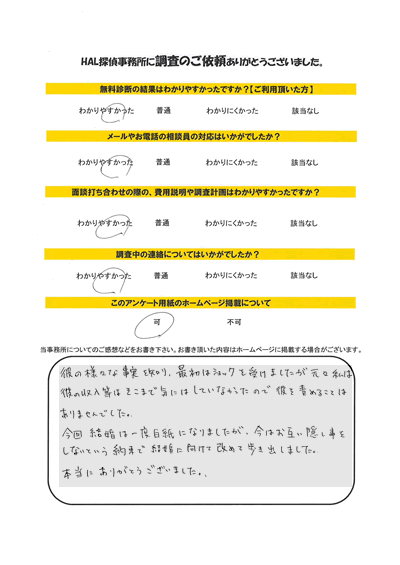 HAL探偵事務所に調査のご依頼ありがとうございました。
無料診断の結果はわかりやすかったですか?【ご利用頂いた方】
わかりやすかった 普通 わかりにくかった 該当なし
メールやお電話の相談員の対応はいかがでしたか?
わかりやすかった 普通 わかりにくかった 該当なし
面談打ち合わせの際の、費用説明や調査計画はわかりやすかったですか?
わかりやすかった 普通 わかりにくかった 該当なし
調査中の連絡についてはいかがでしたか?
わかりやすかった 普通 わかりにくかった 該当なし
このアンケート用紙のホームページ掲載について
可 不可
当事務所についてのご感想などをお書き下さい。お書き頂いた内容はホームページに掲載する場合がございます。
彼の様々な事実を知り、最初はショックを受けましたが元々私は
彼の収入等はそこまで気にはしていなかったので彼を責めることは
ありませんでした。
今回結婚は一度白紙になりましたが、今はお互い隠し事を
しないという約束で結婚に向けて改めて歩き出しました。
本当にありがとうございました。